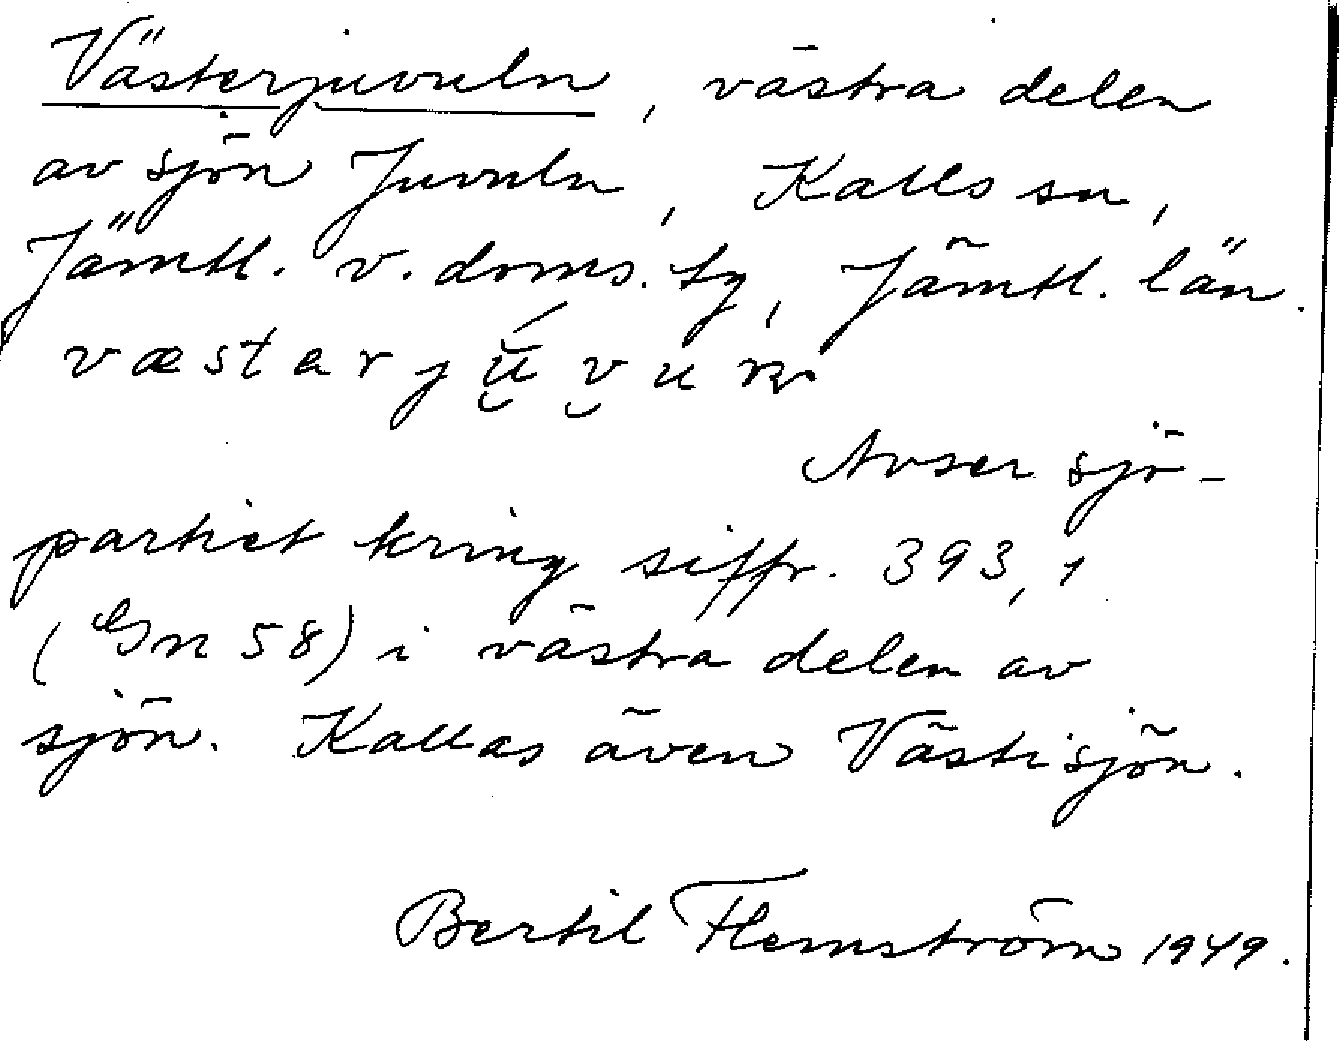 Västerjuvuln, västra delen
av sjön Juvuln, Kalls sn,
Jämtl. v. doms. tg, Jämtl. län.
Avser sjö-
partiet kring siffr. 393,1
(Gn 58) i västra delen av
sjön. Kallas även Västisjön.
Bertil Flemström 1949.